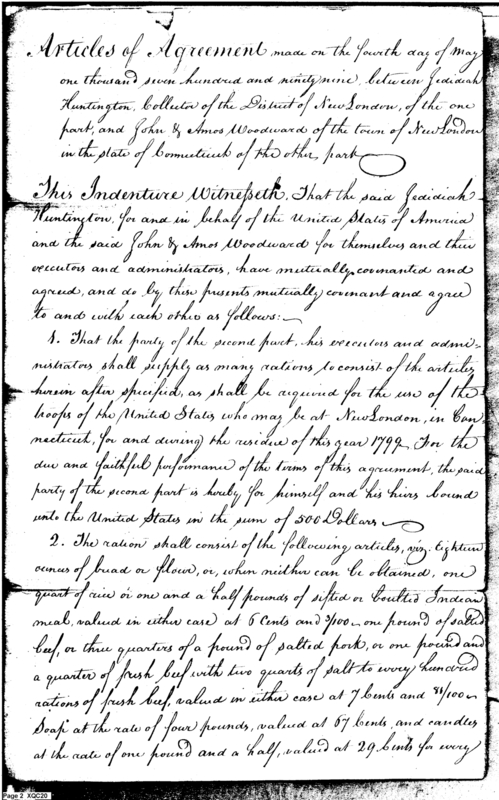 Articles of Agreement made on the fourth day of May
one thousand seven hundred and ninety nine, between Jedidiah
Huntington, Collector of the District of New London, of the one
part, and John & Amos Woodward of the town of New London
in the state of Connecticut of the other part
This Indenture Witnesseth, That the said Jedidiah
Huntington, for and in behalf of the United States of America
and the said John & Amos Woodward for themselves and their
executors and administrators, have mutually covenanted and
agreed, and do by these presents mutually covenant and agree
to and with each other as follows:
1. That the party of the second part, his executors and admi-
nistrators shall supply as many rations to consist of the articles
herein after specified, as shall be required for the use of the
troops of the United States who may be at New London, in Con
necticut, for and during the residue of this year 1799 For the
due and faithful performance of the terms of this agreement, the said
party of the second part is hereby for himself and his heirs bound
unto the United States in the sum of 500 Dollars
2. The ration shall consist of the following articles, viz. Eighteen
ounces of bread or flour, or, when neither can be obtained, one
quart of rice or one and a half pounds of sifted or boulted Indian
meal, valued in either case at 6 Cents and /100 one pound of salted
beef, or three quarters of a pound of salted pork, or one pound and
a quarter of fresh beef with two quarts of salt to every hundred
rations of fresh beef, valued in either case at 7 Cents and /100
Soap at the rate of four pounds, valued at 67 Cents, and candles
at the rate of one pound and a half, valued at 29 Cents for every
Page 2 XQC20